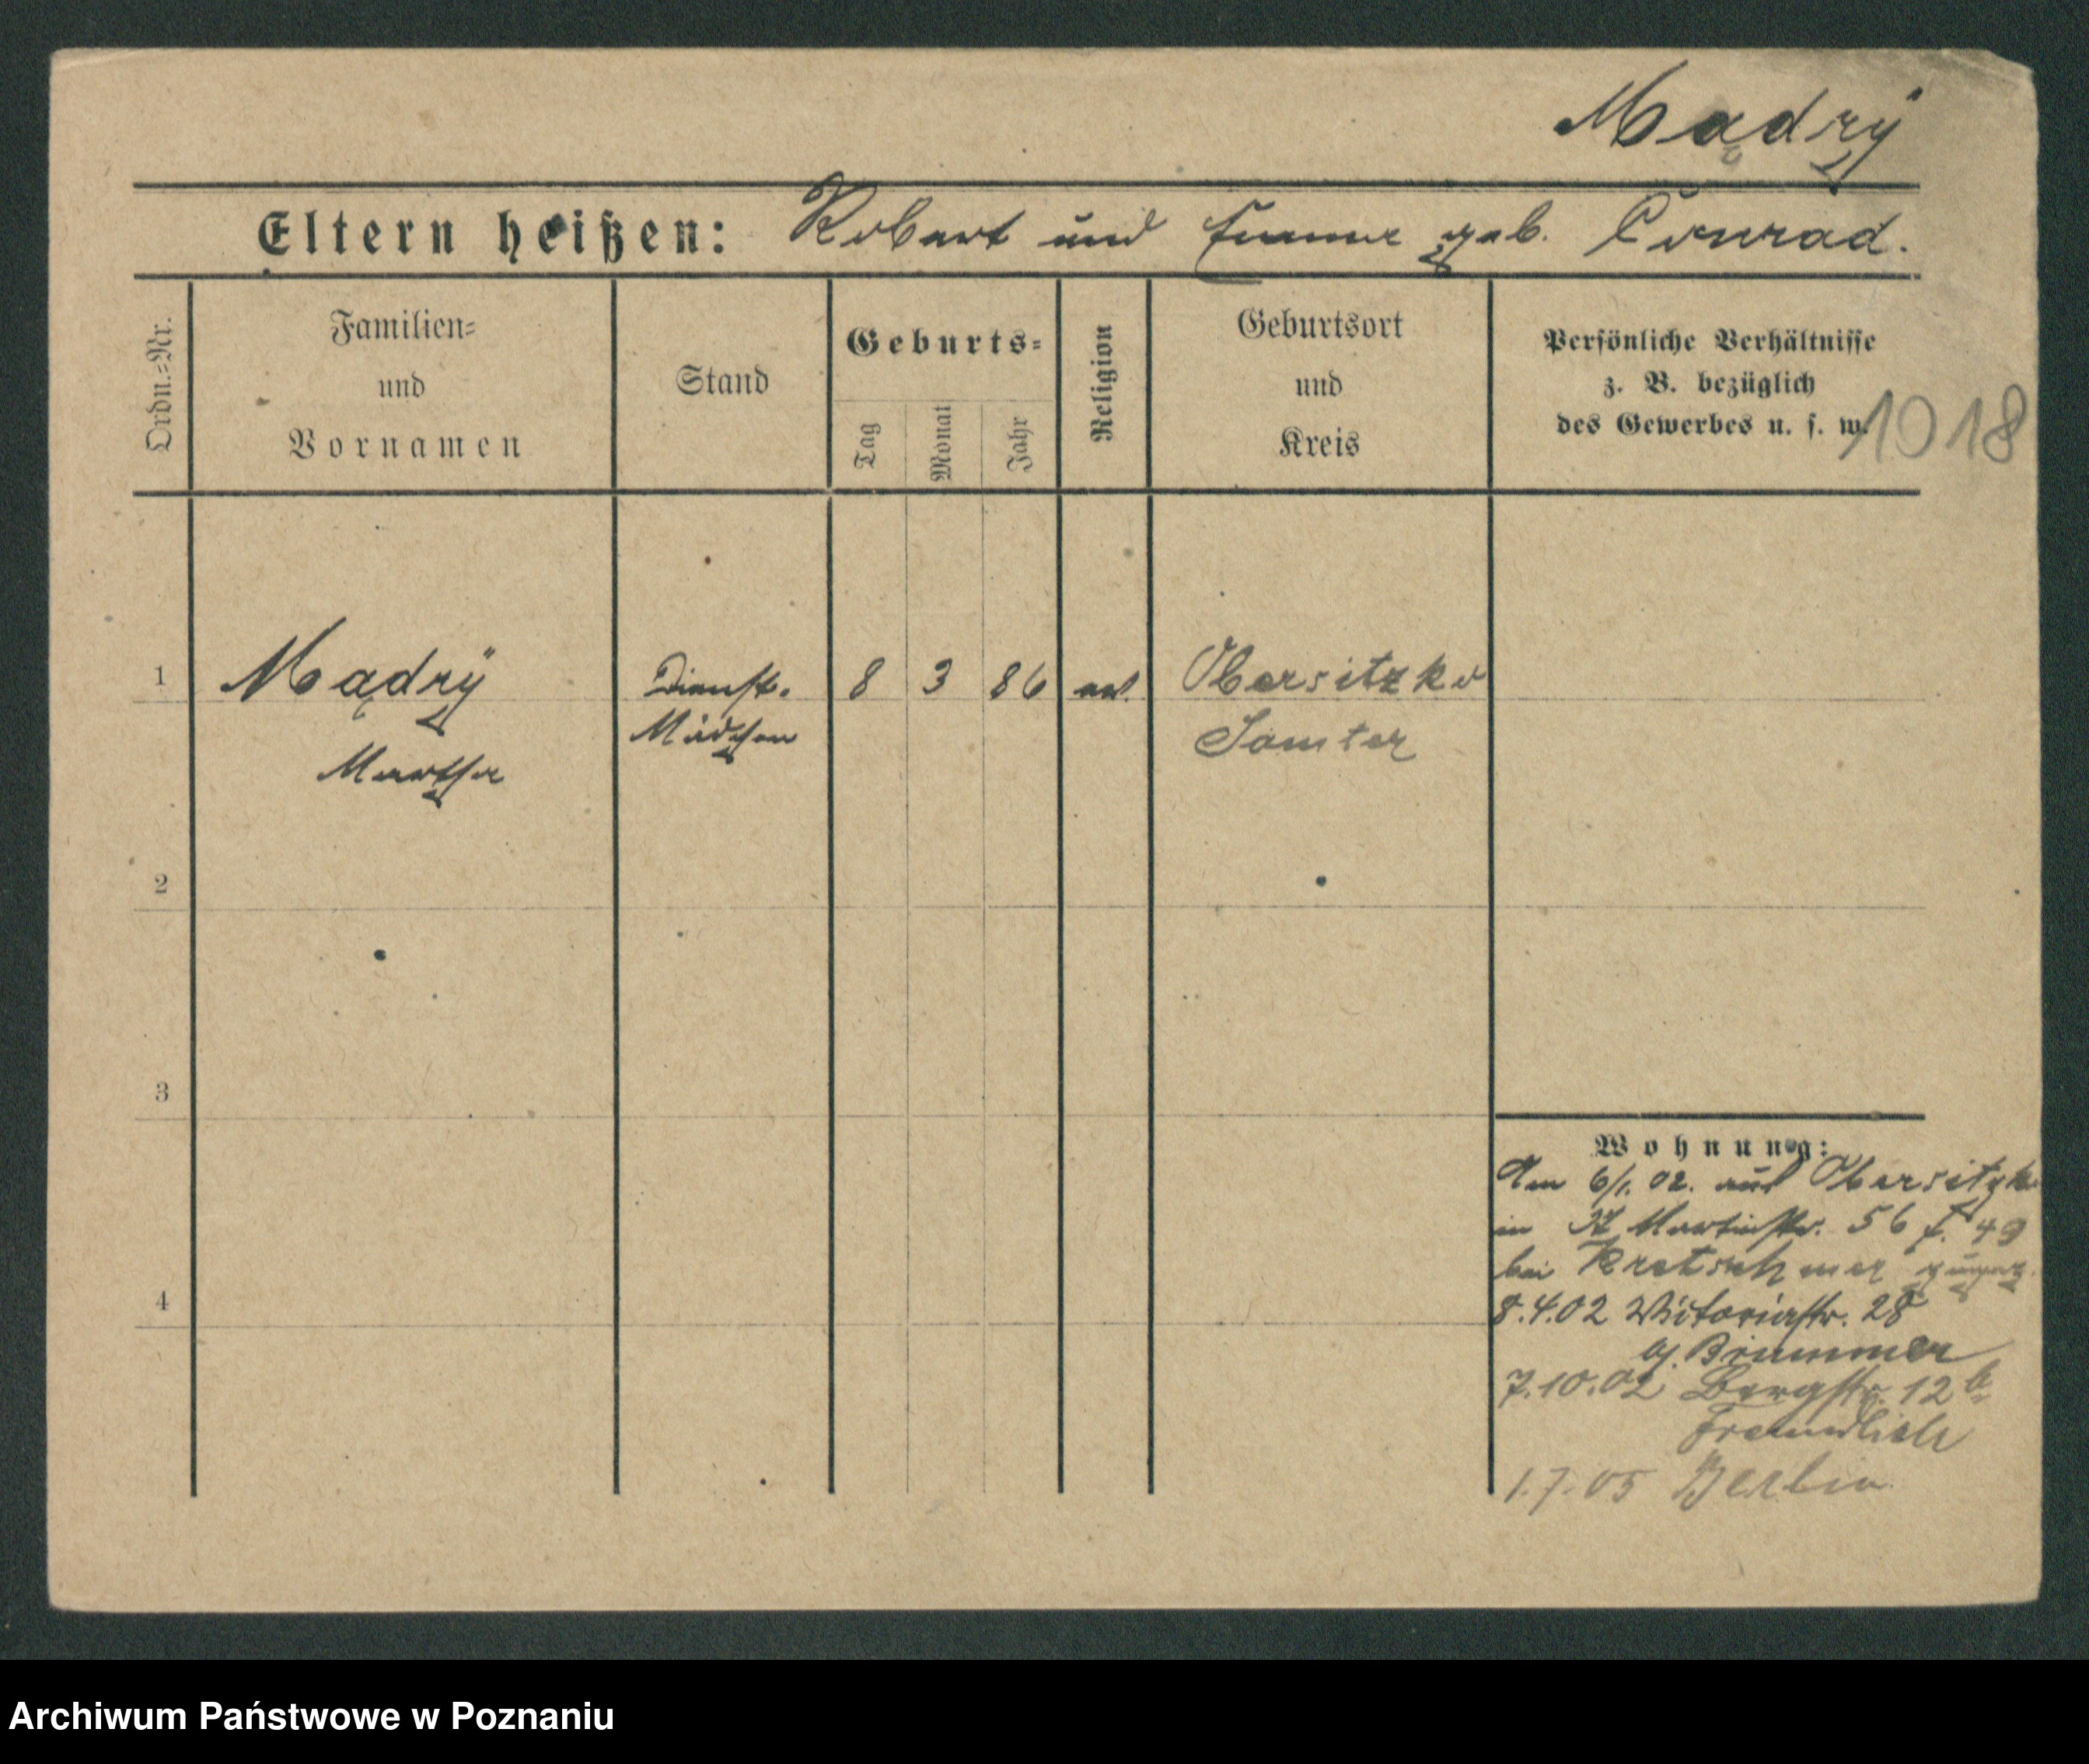 Mądrÿ
Eltern heißen: Robert und Emma geb. Conrad.
Ordn.-Nr.
Familien-
und
Vornamen
Stand
Geburts-
Tag
Monat
Jahr
Religion
Geburtsort
und
Kreis
Persönliche Verhältnisse
z. B. bezüglich
des Gewerbes u. s. w.
1018
1 Mądrÿ Dienst- 8 3 86 ev. Obersitzko
Mädchen Samter
Martha
2
3
4
Wohnung:
Am 6/1. 02. aus Obersitzko
in St Martinstr. 56 f. 49
bei Kretschmer zugez.
8.4.02 Victoriastr. 28
Brummer
7.10.02 Bergstr. 12b
Freundlich
1.7.05 Berlin
Archiwum Państwowe w Poznaniu